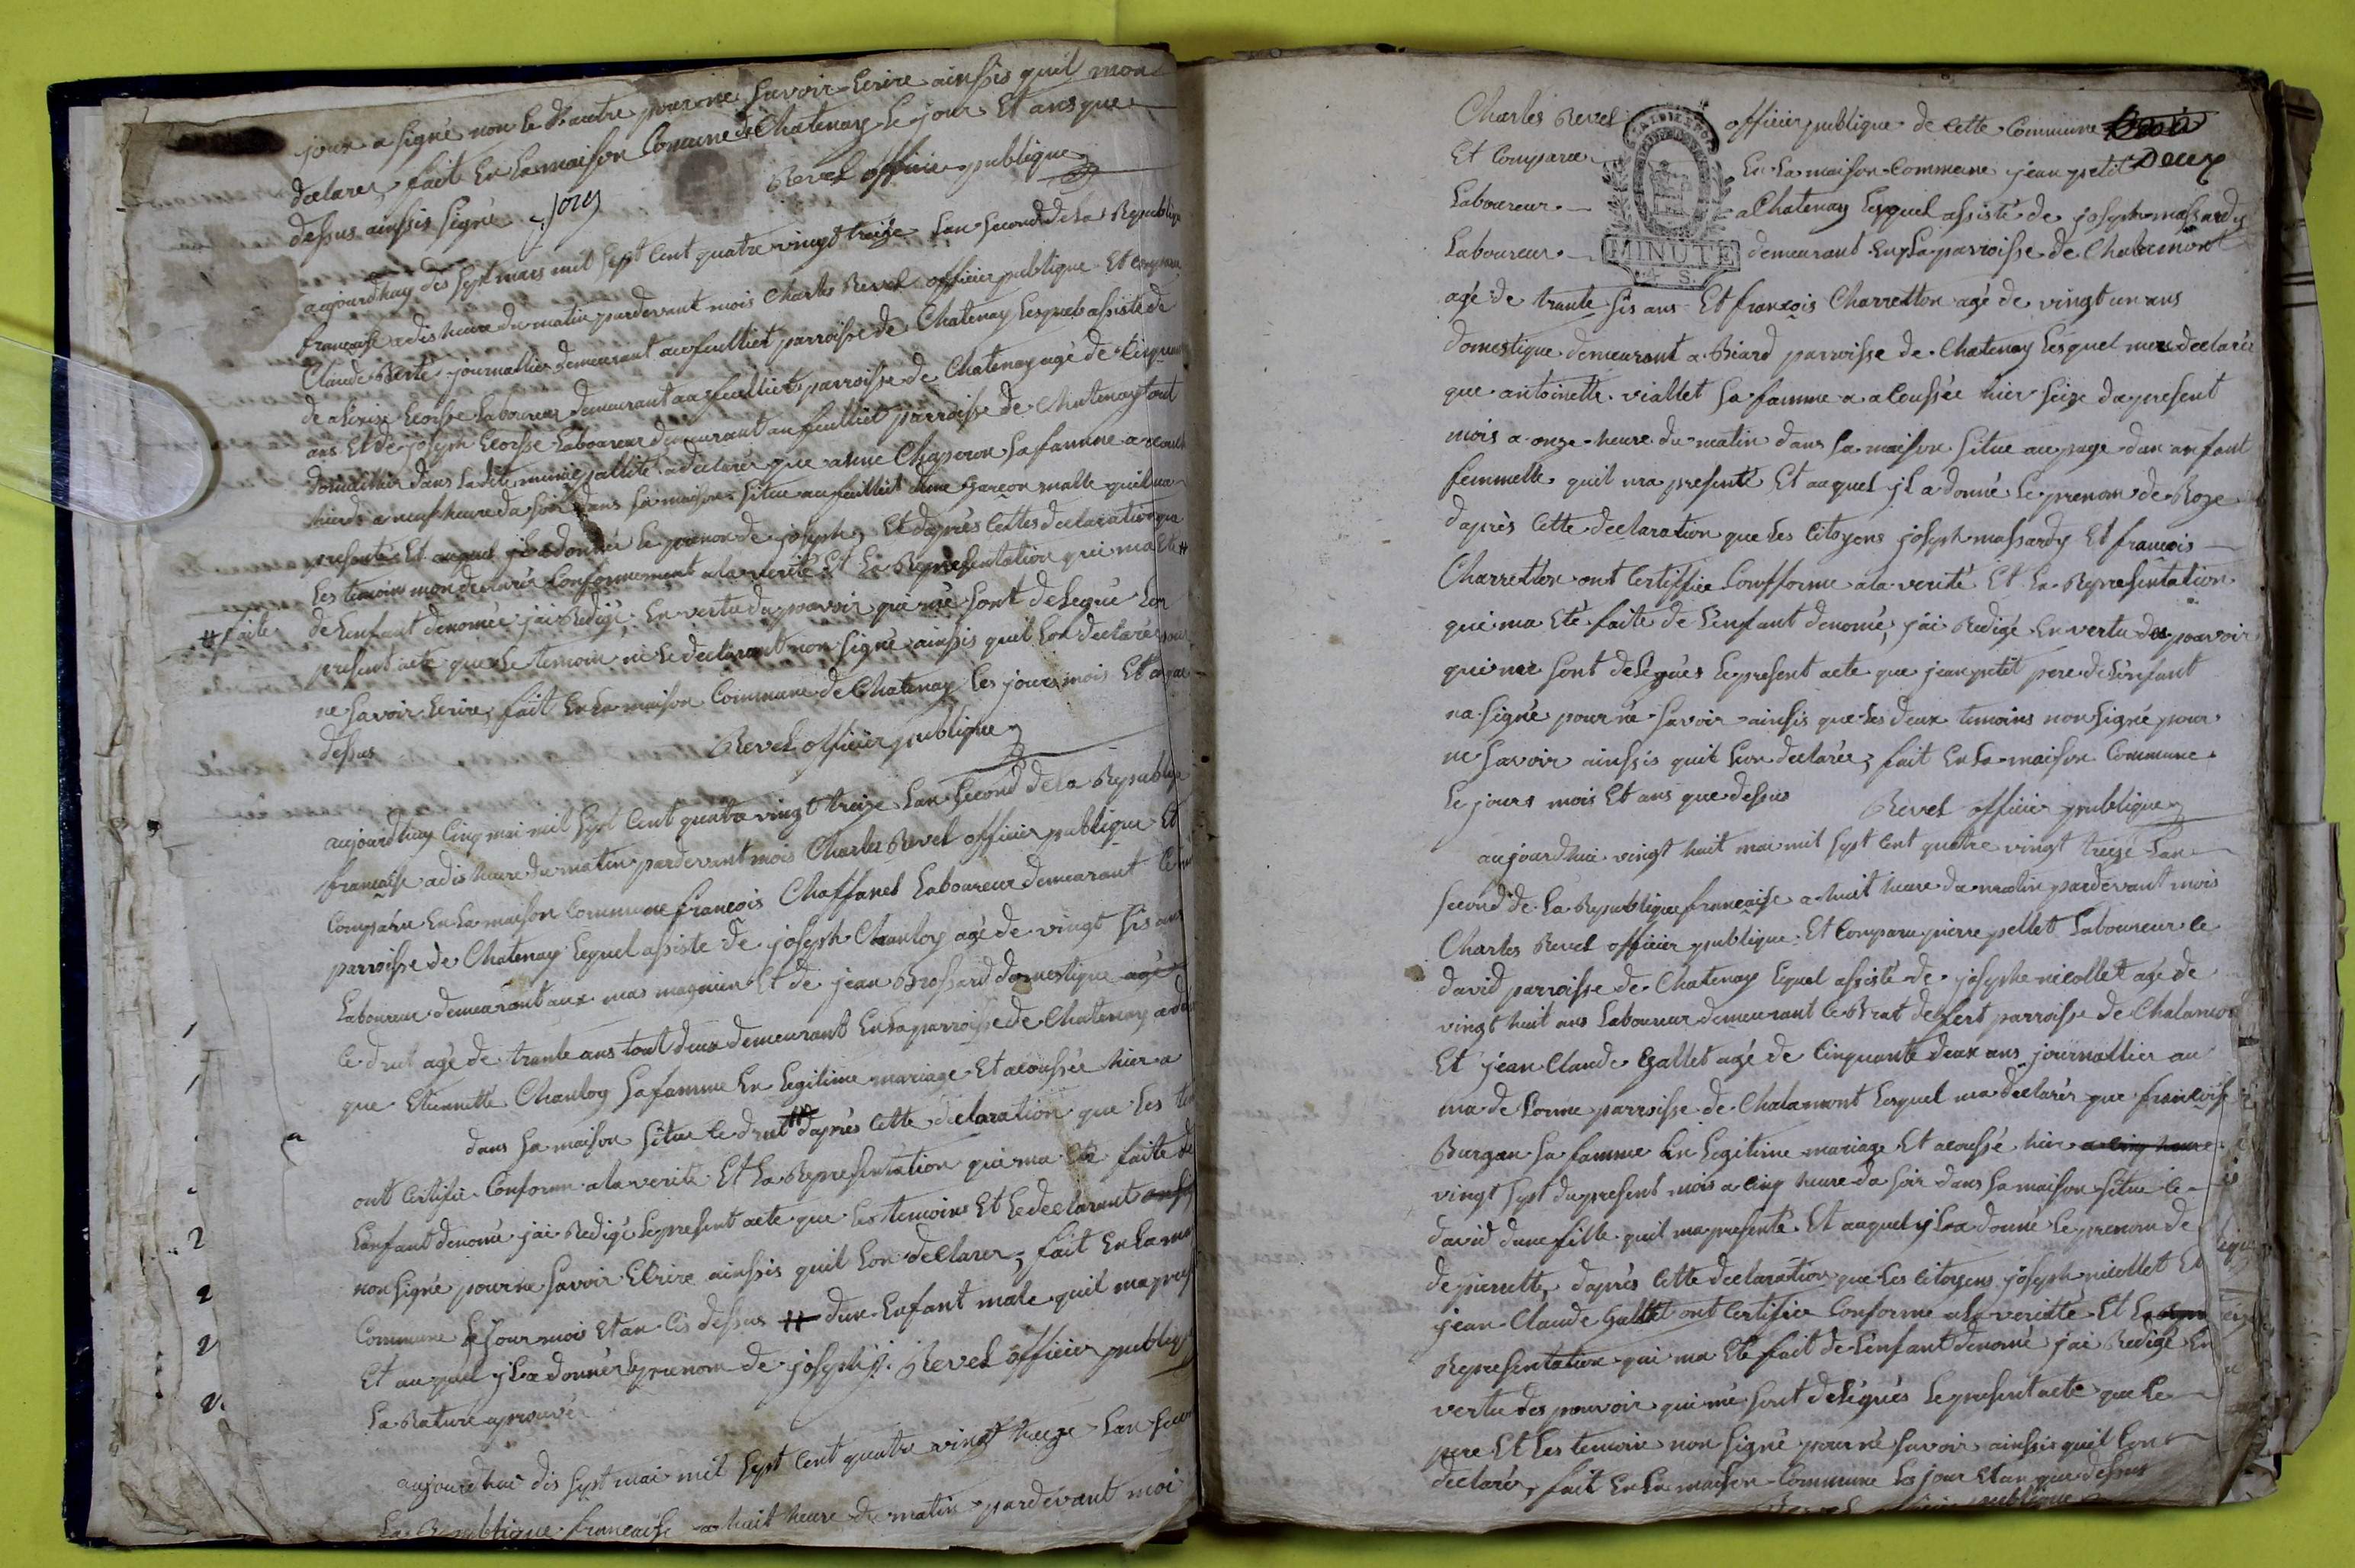 joux a signé non le d. autre pour ne savoir Ecrire ainssis quil mon
declarer, fait En la maison Comune de Chatenay Le jour Et ans que
dessus ainssis signé joux Revel officie publique
aujourdhuy dis sept mars mil sept Cent quatre vingt traize Lan second de La Republique
francaise a dis heure du matin pardevant mois Charles Revel officier publique Et Comparu
Claude Berte journallier demeurant au feuilliet parroisse de Chatenay Lesquels assiste de
Laboureur demeurant au feuilliet parroisse de Chatenay agé de Cinquante
ans Et de joseph Laboureur demeurant au feuilliet parroisse de Chatenay tout
domicilier dans La dite municipallité a declarer que anne Chaperon Sa famme a
hier a neuf heure du soir dans Sa maison situe au feuilliet dune Garcon malle quil ma
presenté Et auquel jl a donner Le prenom de joseph, Et dapres Cettes declaration que
Les temoins mon declarés Conformement a la verite Et La Representation qui ma Eté #
# faite de Lenfant denomée jai Redigé En vertu du pouvoir qui me sont delegué Le
present acte que Le temoin ne Le declarant non signé ainssis quil Lon declaré pour
ne savoir Ecrire, fait En La maison Commune de Chatenay Les jours mois Et an que
dessus Revel officier publique
aujourdhuy Cinq mai mil sept Cent quatre vingt treize Lan second de La Republique
francaise a dis heure du matin pardevant mois Charles Revel officier publique Et
Comparu En La maison Commune francois Chaffanel Laboureur demeurant
parroisse de Chatenay Lequel assiste de joseph Chanloy agé de vingt sis ans
Laboureur demeurant aux mas magnin Et de jean Brossard domestique agé
Le drut agé de trante ans tout deux demeurant En La parroisse de Chatenay
que Etiennette Chanloy Sa famme En Legitime mariage Et acoussée hier a
dans Sa maison situe Le drut # dapres Cette declaration que Les
ont Certifie Conforme a la verite Et La Representation qui ma Eté faite de
Lanfant denomé jai Redigé Le present acte que Les temoins Et Le declarant
non signé pour ne savoir Ecrire ainssis quil Lon declarer, fait En La
Commune Le Jour mois Et an Cis dessus # dun Enfant male quil ma
Et au quel jl a donner Le prenom de joseph. Revel officier publique
La Rature aprouvé
aujourdhui dis sept mai mil sept Cent quatre vingt treize Lan
La Republique francaise a huit heure du matin pardevant moi
Charles Revel officier publique de Cette Commune
Deux
MINUTE
4. S.
Et Comparu En La maison Commune jean petit
Laboureur a Chatenay Lesquel assisté de joseph massardy
Laboureur demeurant En La parroisse de Chalamont
agé de trante sis ans Et francois Charretton agé de vingt un ans
domestique demeurant a Biard parroisse de Chatenay Lesquel me declarér
que antoinette viallet Sa famme a acoussée hier seize du present
mois a onze heure du matin dans Sa maison situe au page dun anfant
femmelle quil ma presenté Et auquel jl a donné Le prenom de Roze
dapres Cette declaration que Les Citoyens joseph massardy Et francois
Charretton ont Certiffie Confforme a la verité Et La Representation
qui ma Eté faite de Lenfant denomé, jai Redigé En vertu du pouvoir
qui me sont delegués Le present acte que jean petit pere de Lenfant
na signé pour ne savoir ainsis que Les deux temoins non signé pour
ne savoir ainssis quil Lon declarée, fait En La maison Commune
Le jours mois Et ans que dessus Revel officier publique
aujourdhui vingt huit mai mil sept Cent quatre vingt treize Lan
second de La Republique francaise a huit heure du matin pardevant mois
Charles Revel officier publique Et Comparu pierre pellet Laboureur Le
david parroisse de Chatenay Lequel assisté de josephe nicollet agé de
vingt huit ans Laboureur demeurant Le Brat desert parroisse de Chalamont
Et jean Claude Gallet agé de Cinquante deux ans journallier au
ma de Lorme parroisse de Chalamont Lesquel ma declarér que francoise
Burgan Sa famme En Legitime mariage Et acoussé hier a Cinq heure
vingt sept du present mois a Cinq heure du soir dans Sa maison situe Le
david dune fille quil ma presenté Et auquel jl a donné Le prenom de
de pierrette, dapres Cette declaration que Les Citoyens joseph nicollet Et
jean Claude Gallet ont Certifiée Conforme a la veriatté Et La
Representation qui ma Eté fait de Lenfant denomé jai Redigé En
vertu des pouvoir qui me sont delegués Le present acte que Le
pere Et Les temoin non signé pour ne savoir ainssis quil Lon
declaré, fait En La maison Commune Les jour Et an que dessus
Revel officier publique